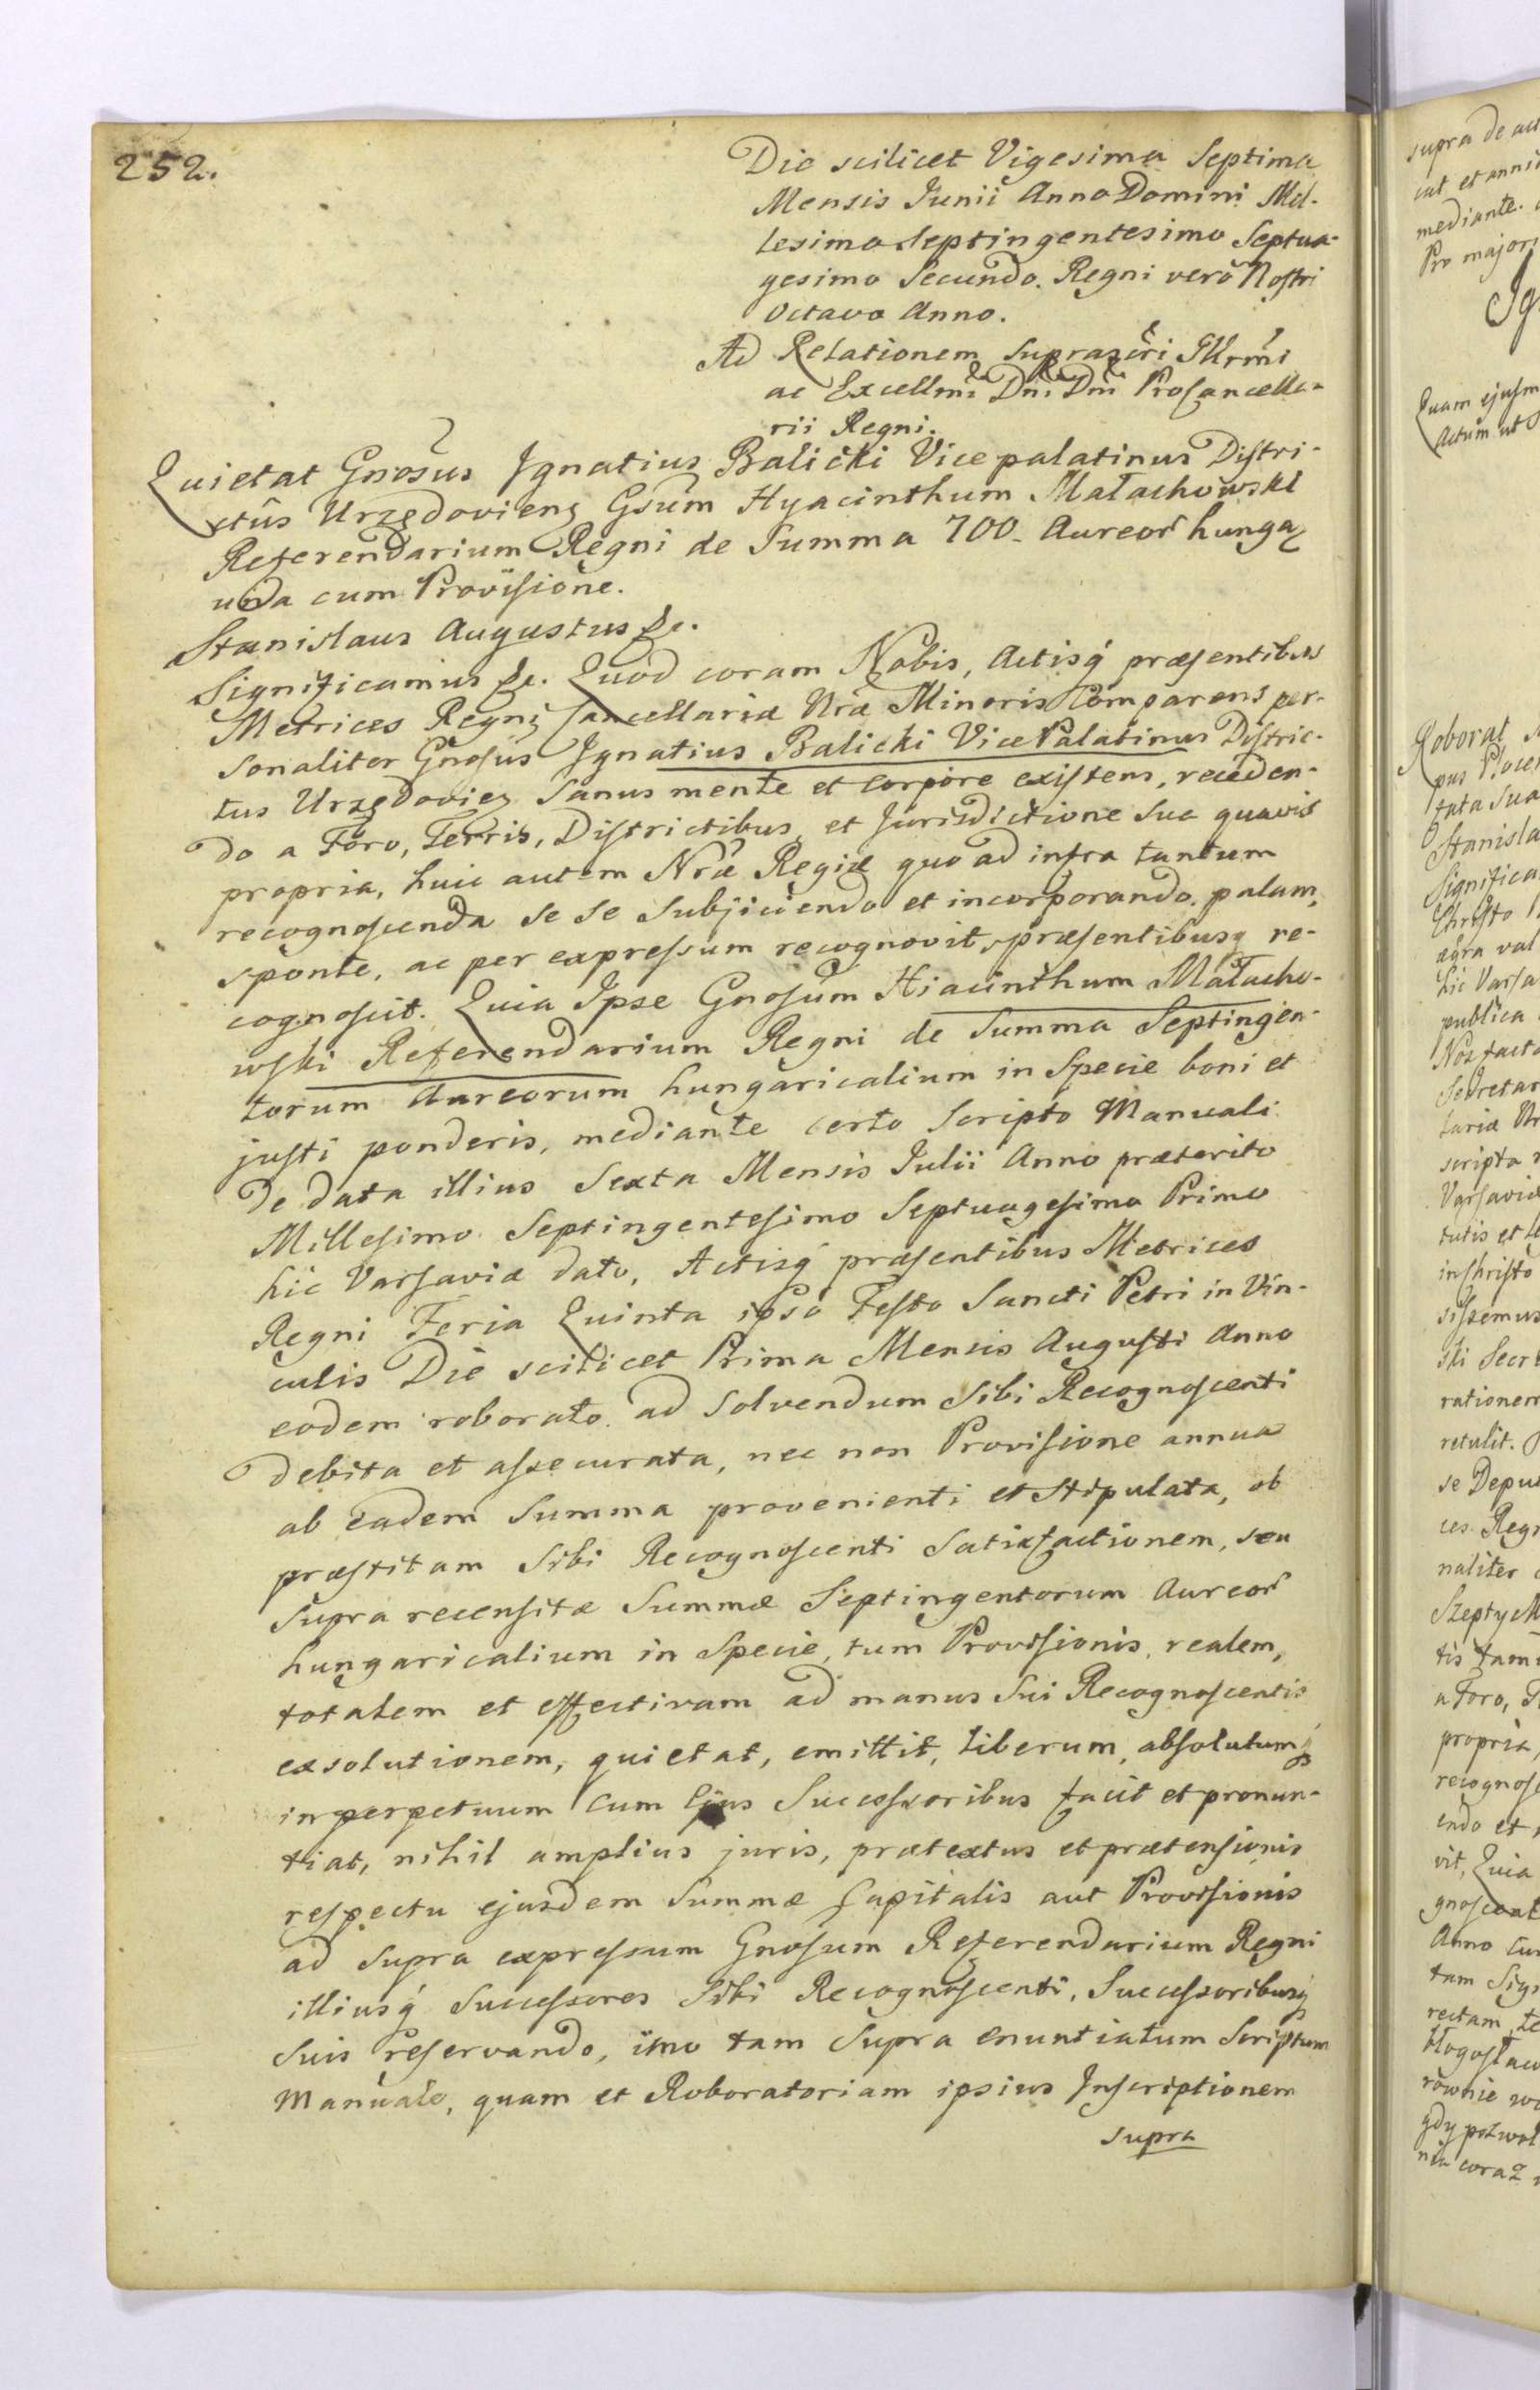 252.
Die scilicet Vigesima Septima
Mensis Junii Anno Domini Mil-
lesimo Septingentesimo Septua-
gesimo Secundo. Regni verò Nostri
Octavo Anno.
Ad Relationem Suprascri Illrmi
ac Excellmi Dni Dni Procancella-
rii Regni.
Quietat Gnosus Ignatius Balicki Vice palatinus Distri-
ctûs Urzędoviens Gsum Hyacinthum Małachowski
Referendarium Regni de Summa 700. Aureor hunga
una cum Provisione.
Stanislaus Augustus &c.
Significamus &c. Quod coram Nobis, Actisq præsentibus
Metrices Regni Cancellariæ Nræ Minoris Comparens per-
sonaliter Gnosus Ignatius Balicki Vice Palatinus Distric-
tus Urzędovien Sanus mente et corpore existens, receden-
do a Foro, Terris, Districtibus et Jurisdictione Sua quavis
propria, huic autem Nræ Regiæ quo ad infra tantum
recognoscenda se se Subjiciendo et incorporando. palam,
sponte, ac per expressum recognovit, præsentibusq re-
cognoscit. Quia Ipse Gnosum Hiacinthum Małacho-
wski Referendarium Regni de Summa Septingen-
torum Aureorum hungaricalium in Specie boni et
justi ponderis, mediante certo Scripto Manuali
De data illius Sexta Mensis Julii Anno præterito
Millesimo Septingentesimo Septuagesimo Primo
hic Varsaviæ dato, Actisq præsentibus Metrices
Regni Feria Quinta ipso Festo Sancti Petri in Vin-
culis Die scilicet Prima Mensis Augusti Anno
eodem roborato. ad Solvendum Sibi Recognoscenti
debita et assecurata, nec non Provisione annua
ab eadem Summa provenienti et Stipulata, ob
præstitam Sibi Recognoscenti Satisfactionem, seu
Supra recensitæ Summæ Septingentorum Aureor
hungaricalium in Specie, tum Provisionis, realem,
totalem et effectivam ad manus Sui Recognoscentis
exsolutionem, quietat, emittit, liberum, absolutumq
in perpetuum cum Ejus Successoribus facit et pronun-
tiat, nihil amplius juris, prætextus et prætensionis
respectu ejusdem Summæ Capitalis aut Provisionis
ad Supra expressum Gnosum Referendarium Regni
illiusq Successores Sibi Recognoscenti, Successoribusq
Suis reservando, imo tam Supra enuntiatum Scriptum
Manuale, quam et Roboratoriam ipsius Inscriptionem
supra
supra de
cat et
mediante.
Pro major
Quam ejusm
Actum ut
Roborat
pus
tata Sua
Stanisla
Significa
Christo
ægra val
hic Varsa
publica
Nos facto
Secretar
lariæ Nr
scripto
Varsaviæ
tutis et
in Christo
sissemus
ski Secr
rationem
retulit.
se Depu
ces Reg
naliter
Szepty
tis tam
a Foro,
propria,
recognosc
endo et
vit, Quia
gnoscent
Anno
tam Sig
rectam
błogosław
równie
gdy pozwol
nia coraz